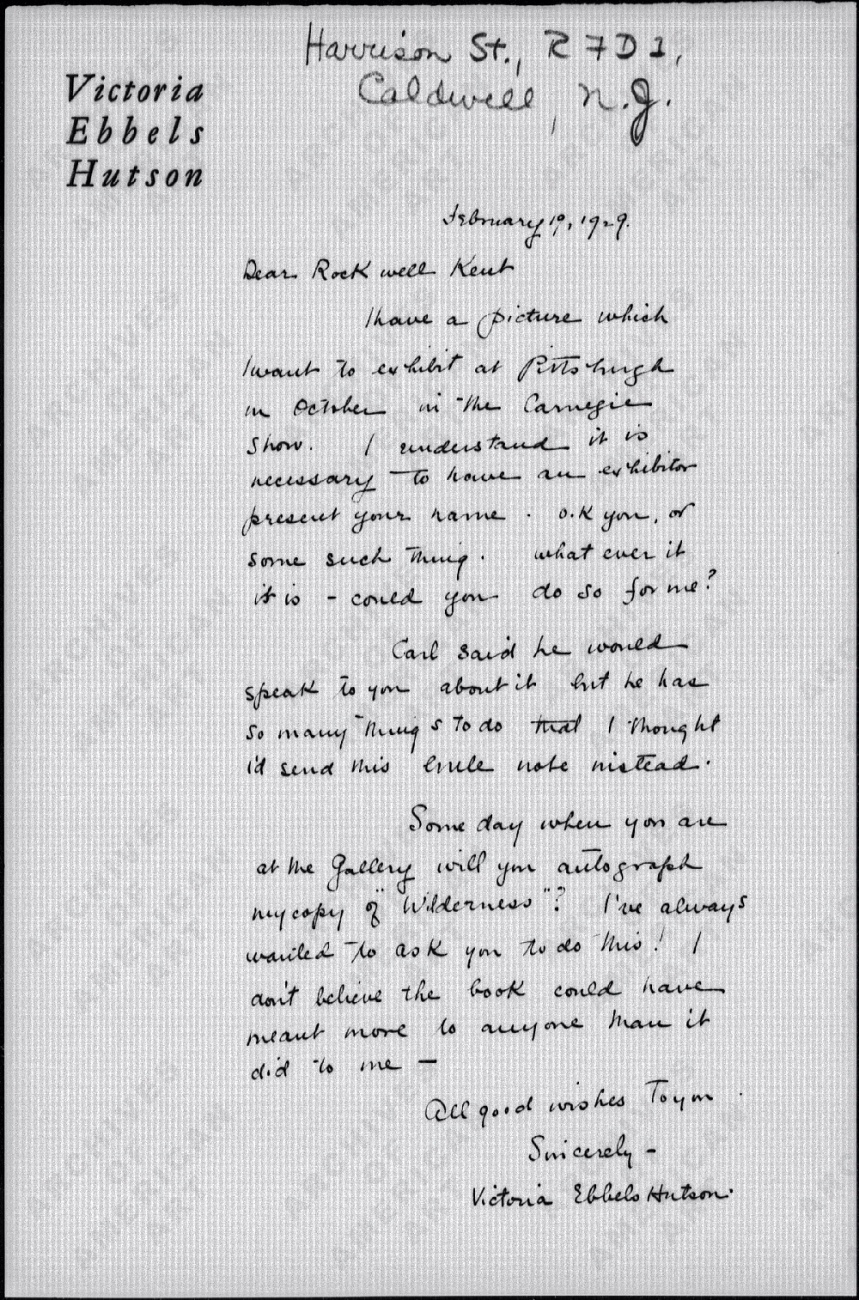 Harrison St., R F D 1,
Caldwell, N.J.
Victoria
Ebbels
Hutson
February 19, 1929.
Dear Rockwell Kent
I have a picture which
I want to exhibit at Pittsburgh
in October in the Carnegie
Show. I understand it is
necessary to have an exhibitor
present your name. O.K you, or
some such thing. What ever it
it is - could you do so for me?
Carl said he would
speak to you about it but he has
so many things to do that I thought
I'd send this little note instead.
Some day when you are
at the Gallery will you autograph
my copy of "Wilderness"? I've always
wanted to ask you to do this! I
don't believe the book could have
meant more to anyone than it
did to me —
All good wishes to you.
Sincerely -
Victoria Ebbels Hutson.
ARCHIVES
OF
AMERICAN
ART